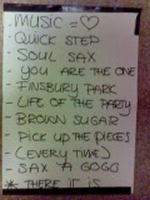 - MUSIC = ♡
- QUICK STEP
- SOUL SAX
- YOU ARE THE ONE
- FINSBURY PARK
- LIFE OF THE PARTY
- BROWN SUGAR
- PICK UP THE PIECES
(EVERY TIME)
- SAX A GOGO
* THERE IT IS